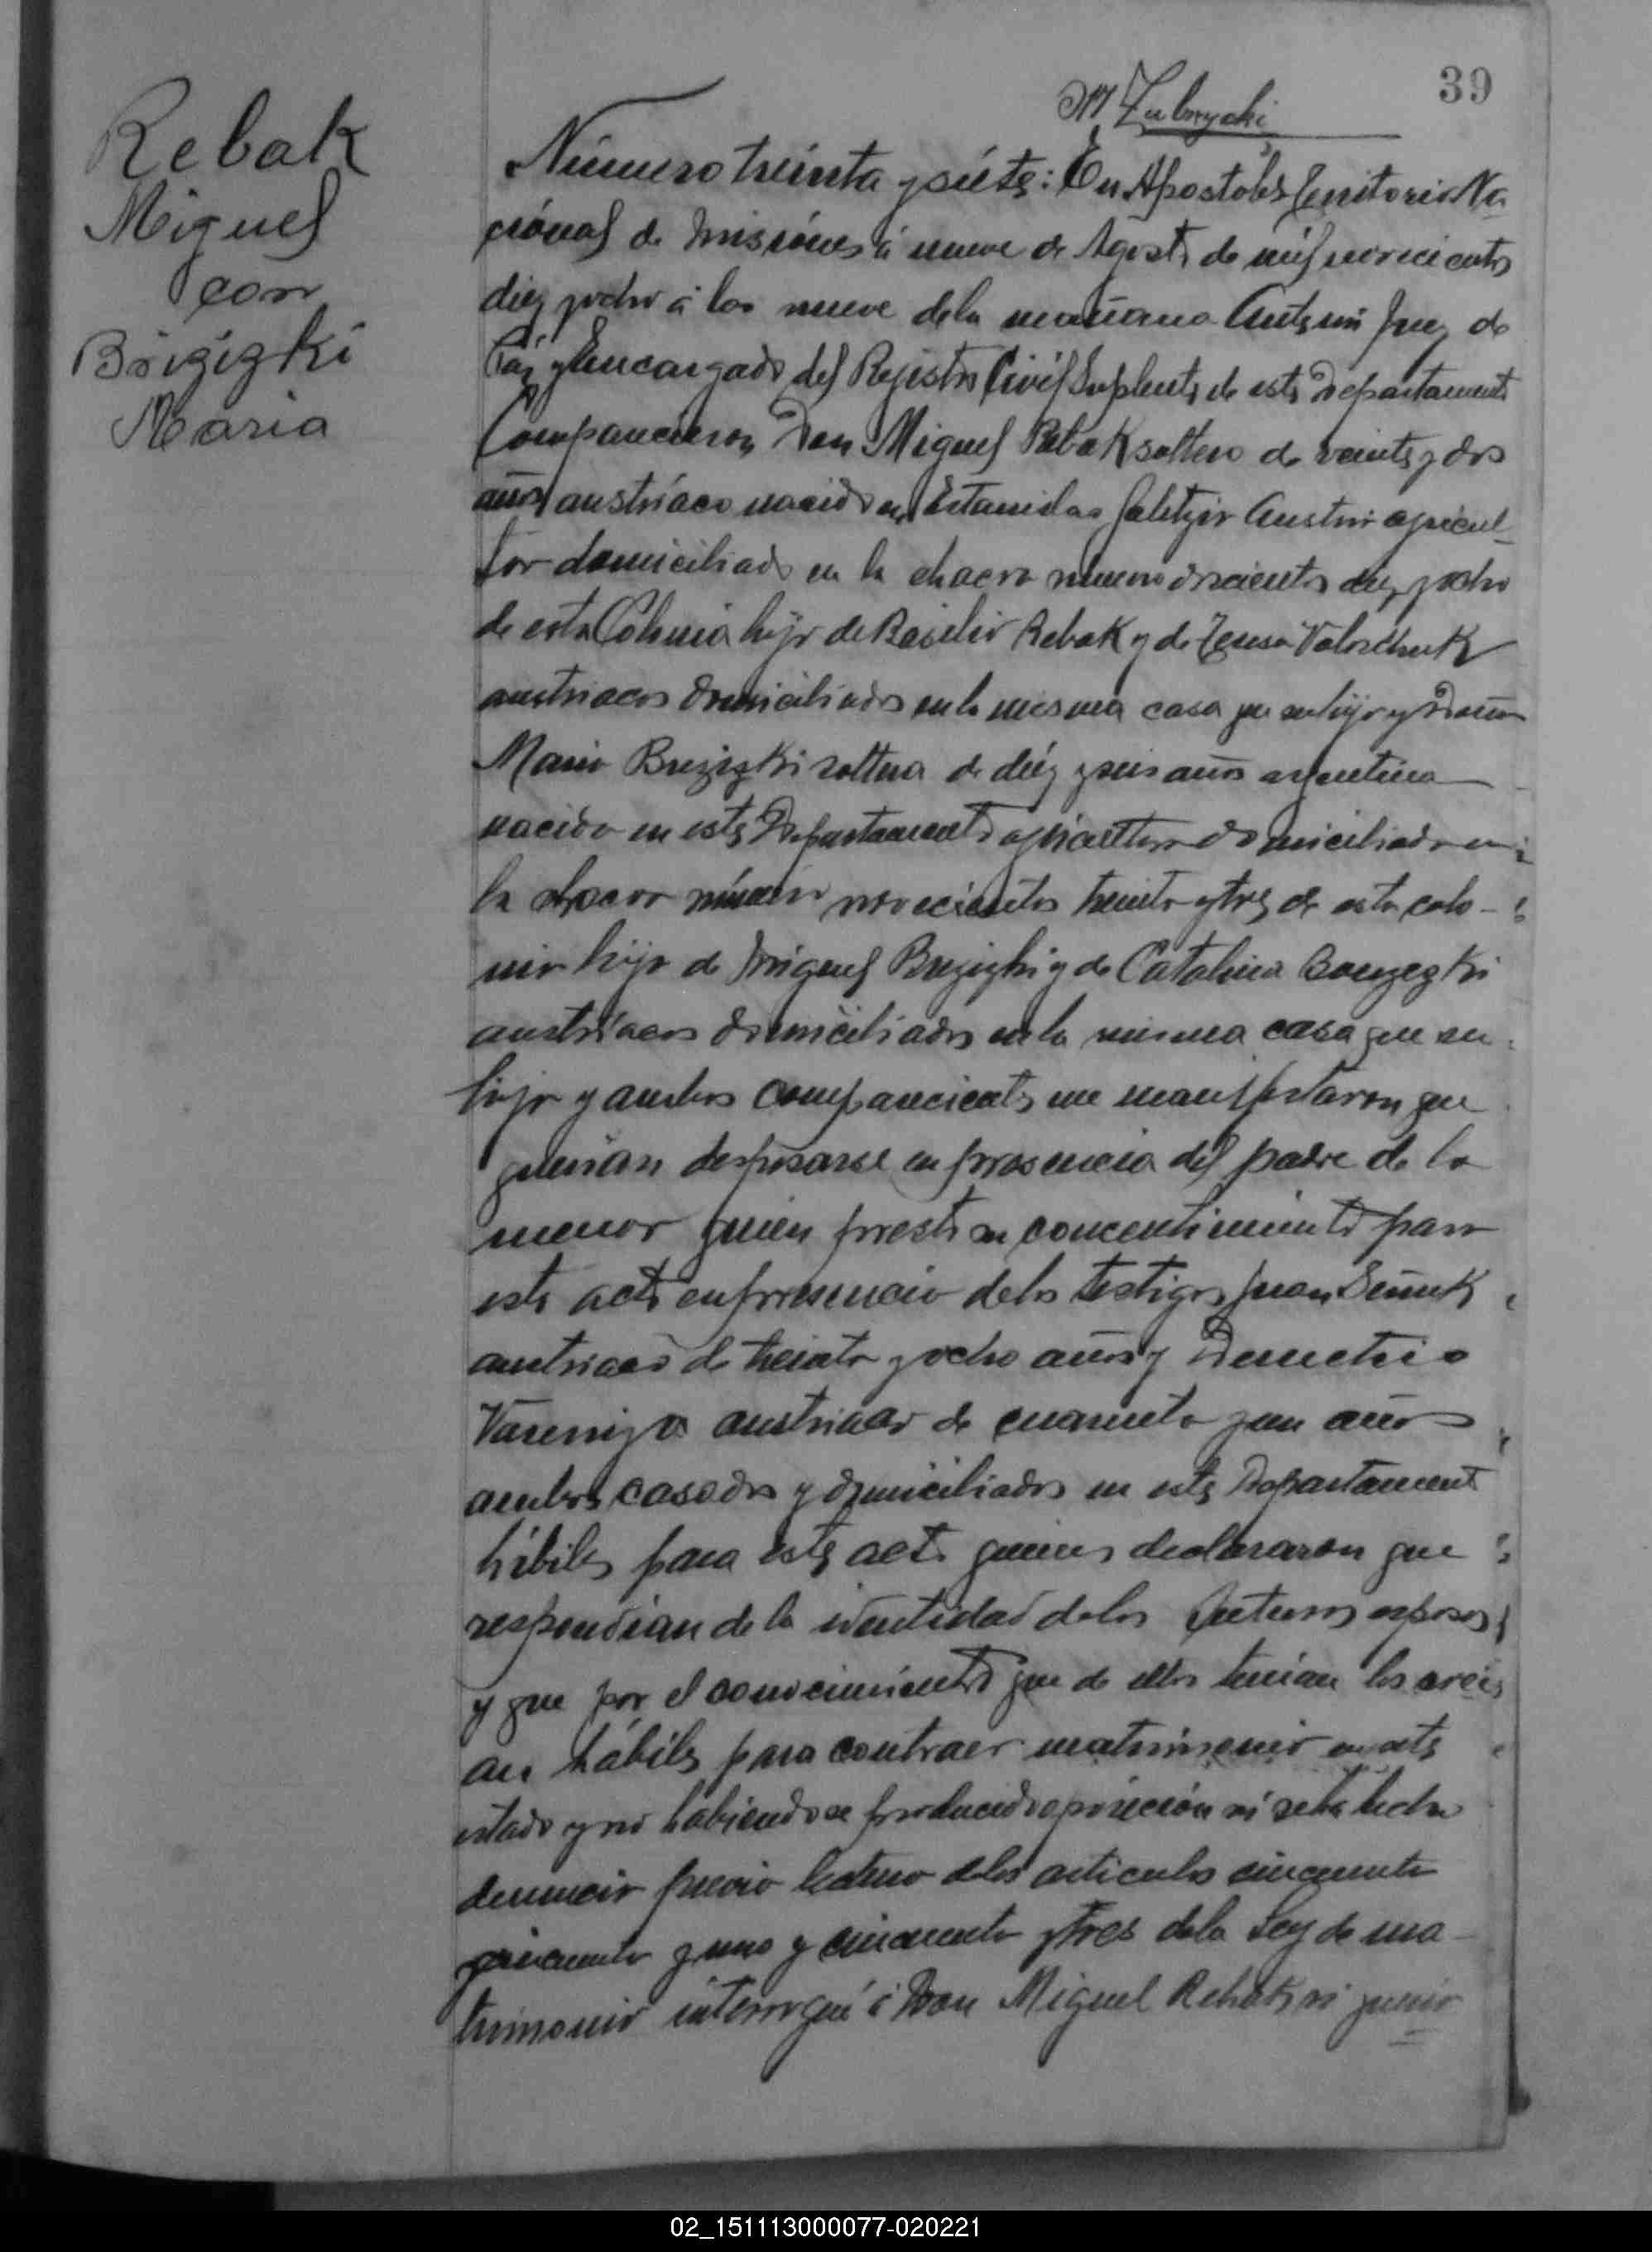 39
M Zubrzycki
Rebak
Miguel
con
Brigizki
Maria
Número treinta y siete: En Apostoles Territorio Na
cional de Misiones á nueve de Agosto de mil novecientos
diez y ocho á las nueve de la mañana Ante mi Juez de
Paz y Encargado del Rejistro Civil Suplente de este Departamento
Comparecieron Don Miguel Rebak soltero de veinte y dos
años austríaco nacido en Estanislao Galitzia Austria agricul_
tor domiciliado en la chacra numero doscientos diez y ocho
de esta Colonia hijo de Basilio Rebak y de Teresa Voloschuk
austriacos domiciliados en la mesma casa que su hijo y Doña
Maria Brezizki soltera de diéz y seis años argentina
nacida en este Departamento agricultora domiciliada en
la chacra número novecientos treinta y tres de esta colo-
nia hija de Miguel Brezizki y de Catalina
austríacos domiciliados en la misma casa que su
hija y ambos comparecientes me manifestaron que
querían desposarse en presencia del padre de la
menor quien presta su concentimiento para
este acto en presencia de los testigos Juan
austriaco de treinta y ocho años y Demetrio
austriaco de cuarenta y un años
ambos casados y domiciliados en este Departamento
hábiles para este acto quienes declararon que
respondían de la identidad de los futuros esposos
y que por el conocimiento que de ellos tenían los creí
an hábiles para contraer matrimonio en este
estado y no habiendose producido oposición ni se ha hecho
denuncia previa lectura de los articulos cincuenta
cincuenta y uno y cincuenta y tres de la Ley de ma-
trimonio interrogué á Don Miguel Rebak si queria
02_151113000077-020221